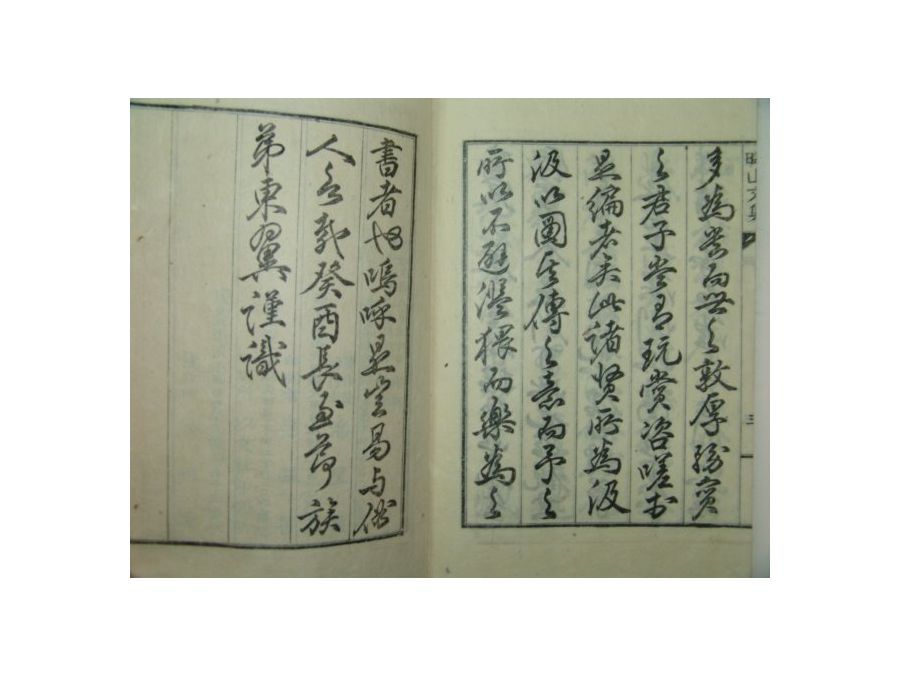 山文集
三
多為而世之敦厚務實
之君子有玩賞咨嗟於
是編者矣此諸賢所為汲
汲以圖其傳之意而予之
所以不避濫猥而樂為之
書者也嗚呼是豈易與俗
人言哉癸酉長至節族
弟東翼謹識